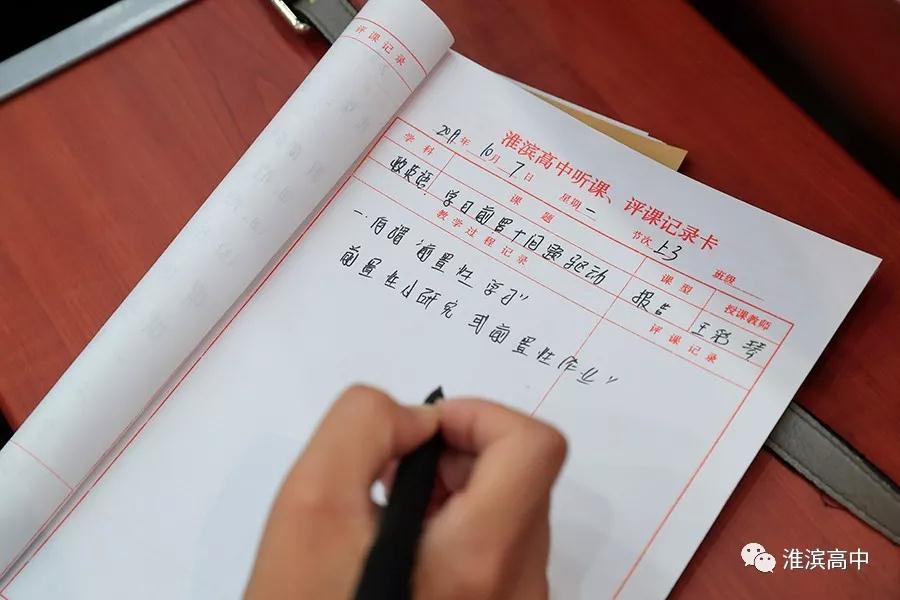 评课记录
淮滨高中听课、评课记录卡
年10月7日 星期一 节次上3 班级
学科 课题 课型 授课教师
英语 学习前置+问题驱动 报告 王彩琴
教学过程记录 评课记录
一.何谓“前置性学习”
前置性小研究或前置性作业”
淮滨高中